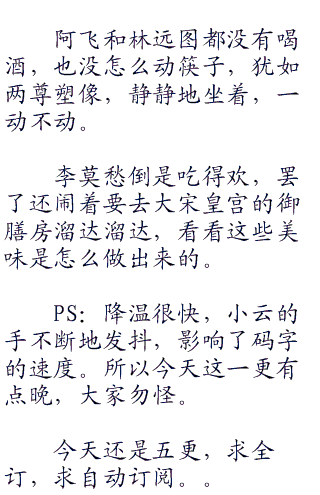 阿飞和林远图都没有喝
酒，也没怎么动筷子，犹如
两尊塑像，静静地坐着，一
动不动。
李莫愁倒是吃得欢，罢
了还闹着要去大宋皇宫的御
膳房溜达溜达，看看这些美
味是怎么做出来的。
PS：降温很快，小云的
手不断地发抖，影响了码字
的速度。所以今天这一更有
点晚，大家勿怪。
今天还是五更，求全
订，求自动订阅。。